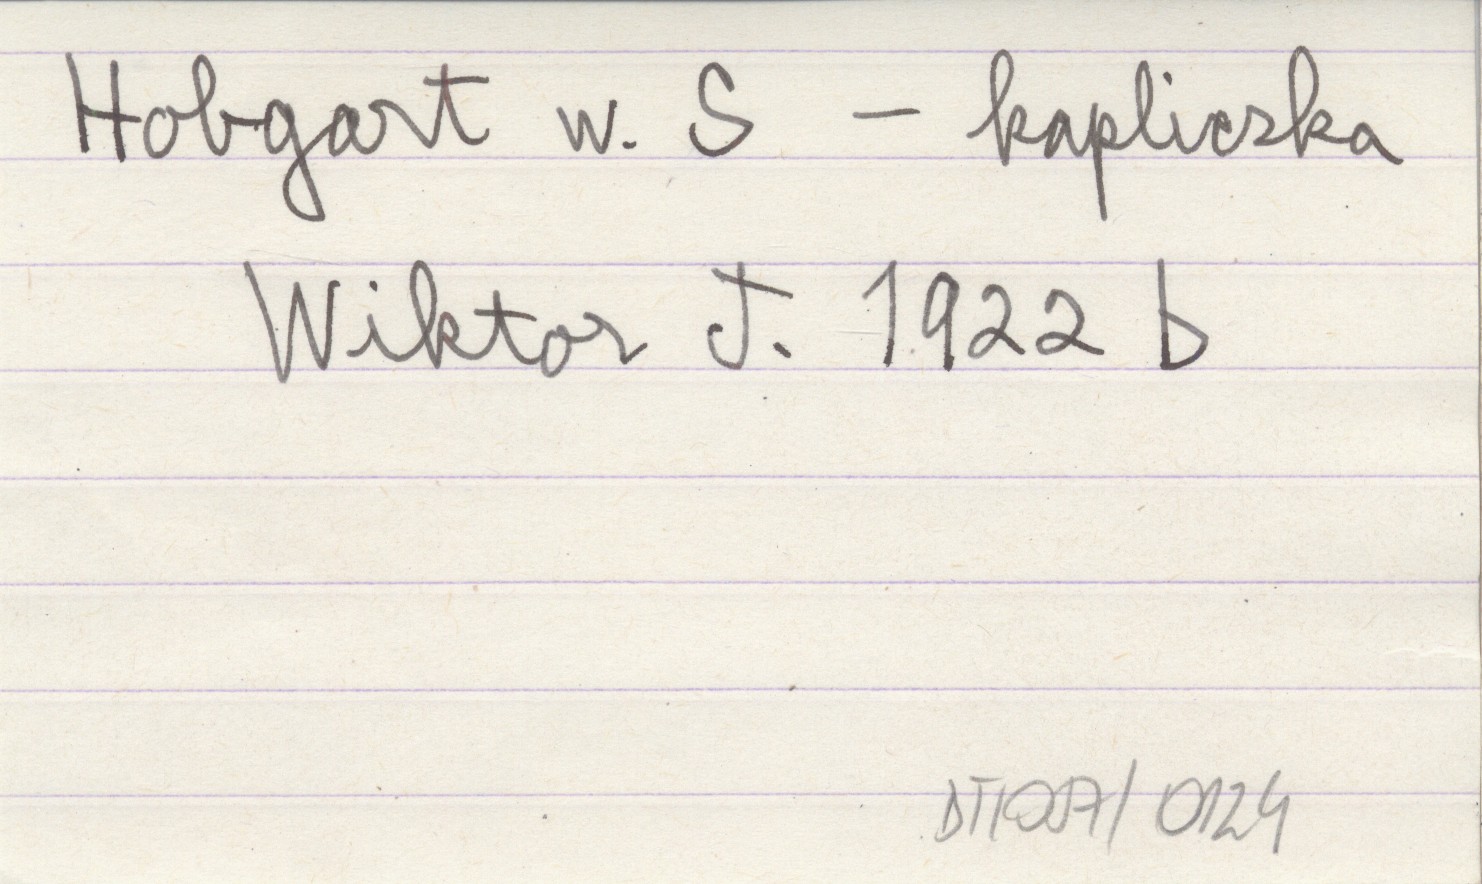 Hobgart w. S – kapliczka
Wiktor J. 1922 b
DT/057/0124